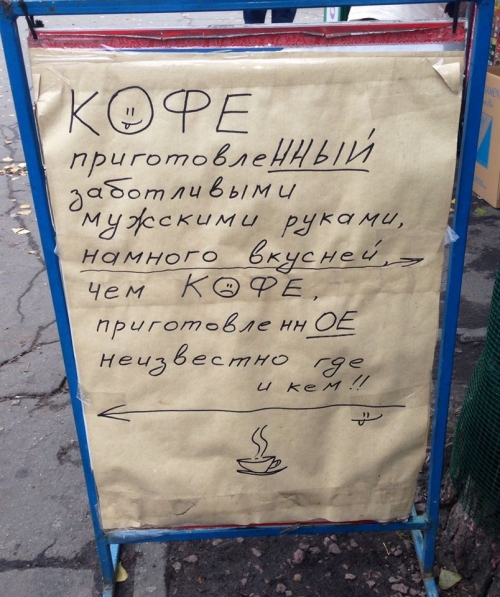 КОФЕ
приготовлеННЫЙ
заботливыми
мужскими руками,
намного вкусней,
чем КОФЕ,
приготовленнОЕ
неизвестно где
и кем!!